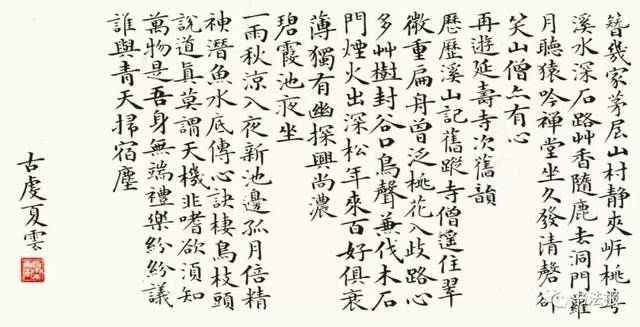 簪幾家茅屋山村靜夾岸桃
溪水深石路艸香隨鹿去洞門蘿
月聽猿吟禪堂坐久發清磬卻
笑山僧亦有心
再遊延壽寺次舊韻
歷歷溪山記舊蹤寺僧遙住翠
微重扁舟曾泛桃花入歧路心
多艸樹封谷口鳥聲兼伐木石
門煙火出深松年來百好俱衰
薄獨有幽探興尚濃
碧霞池夜坐
一雨秋涼入夜新池邊孤月倍精
神潛魚水底傳心訣棲鳥枝頭
說道真莫謂天機非嗜欲須知
萬物是吾身無端禮樂紛紛議
誰與青天掃宿塵
古虔夏雲
书法报